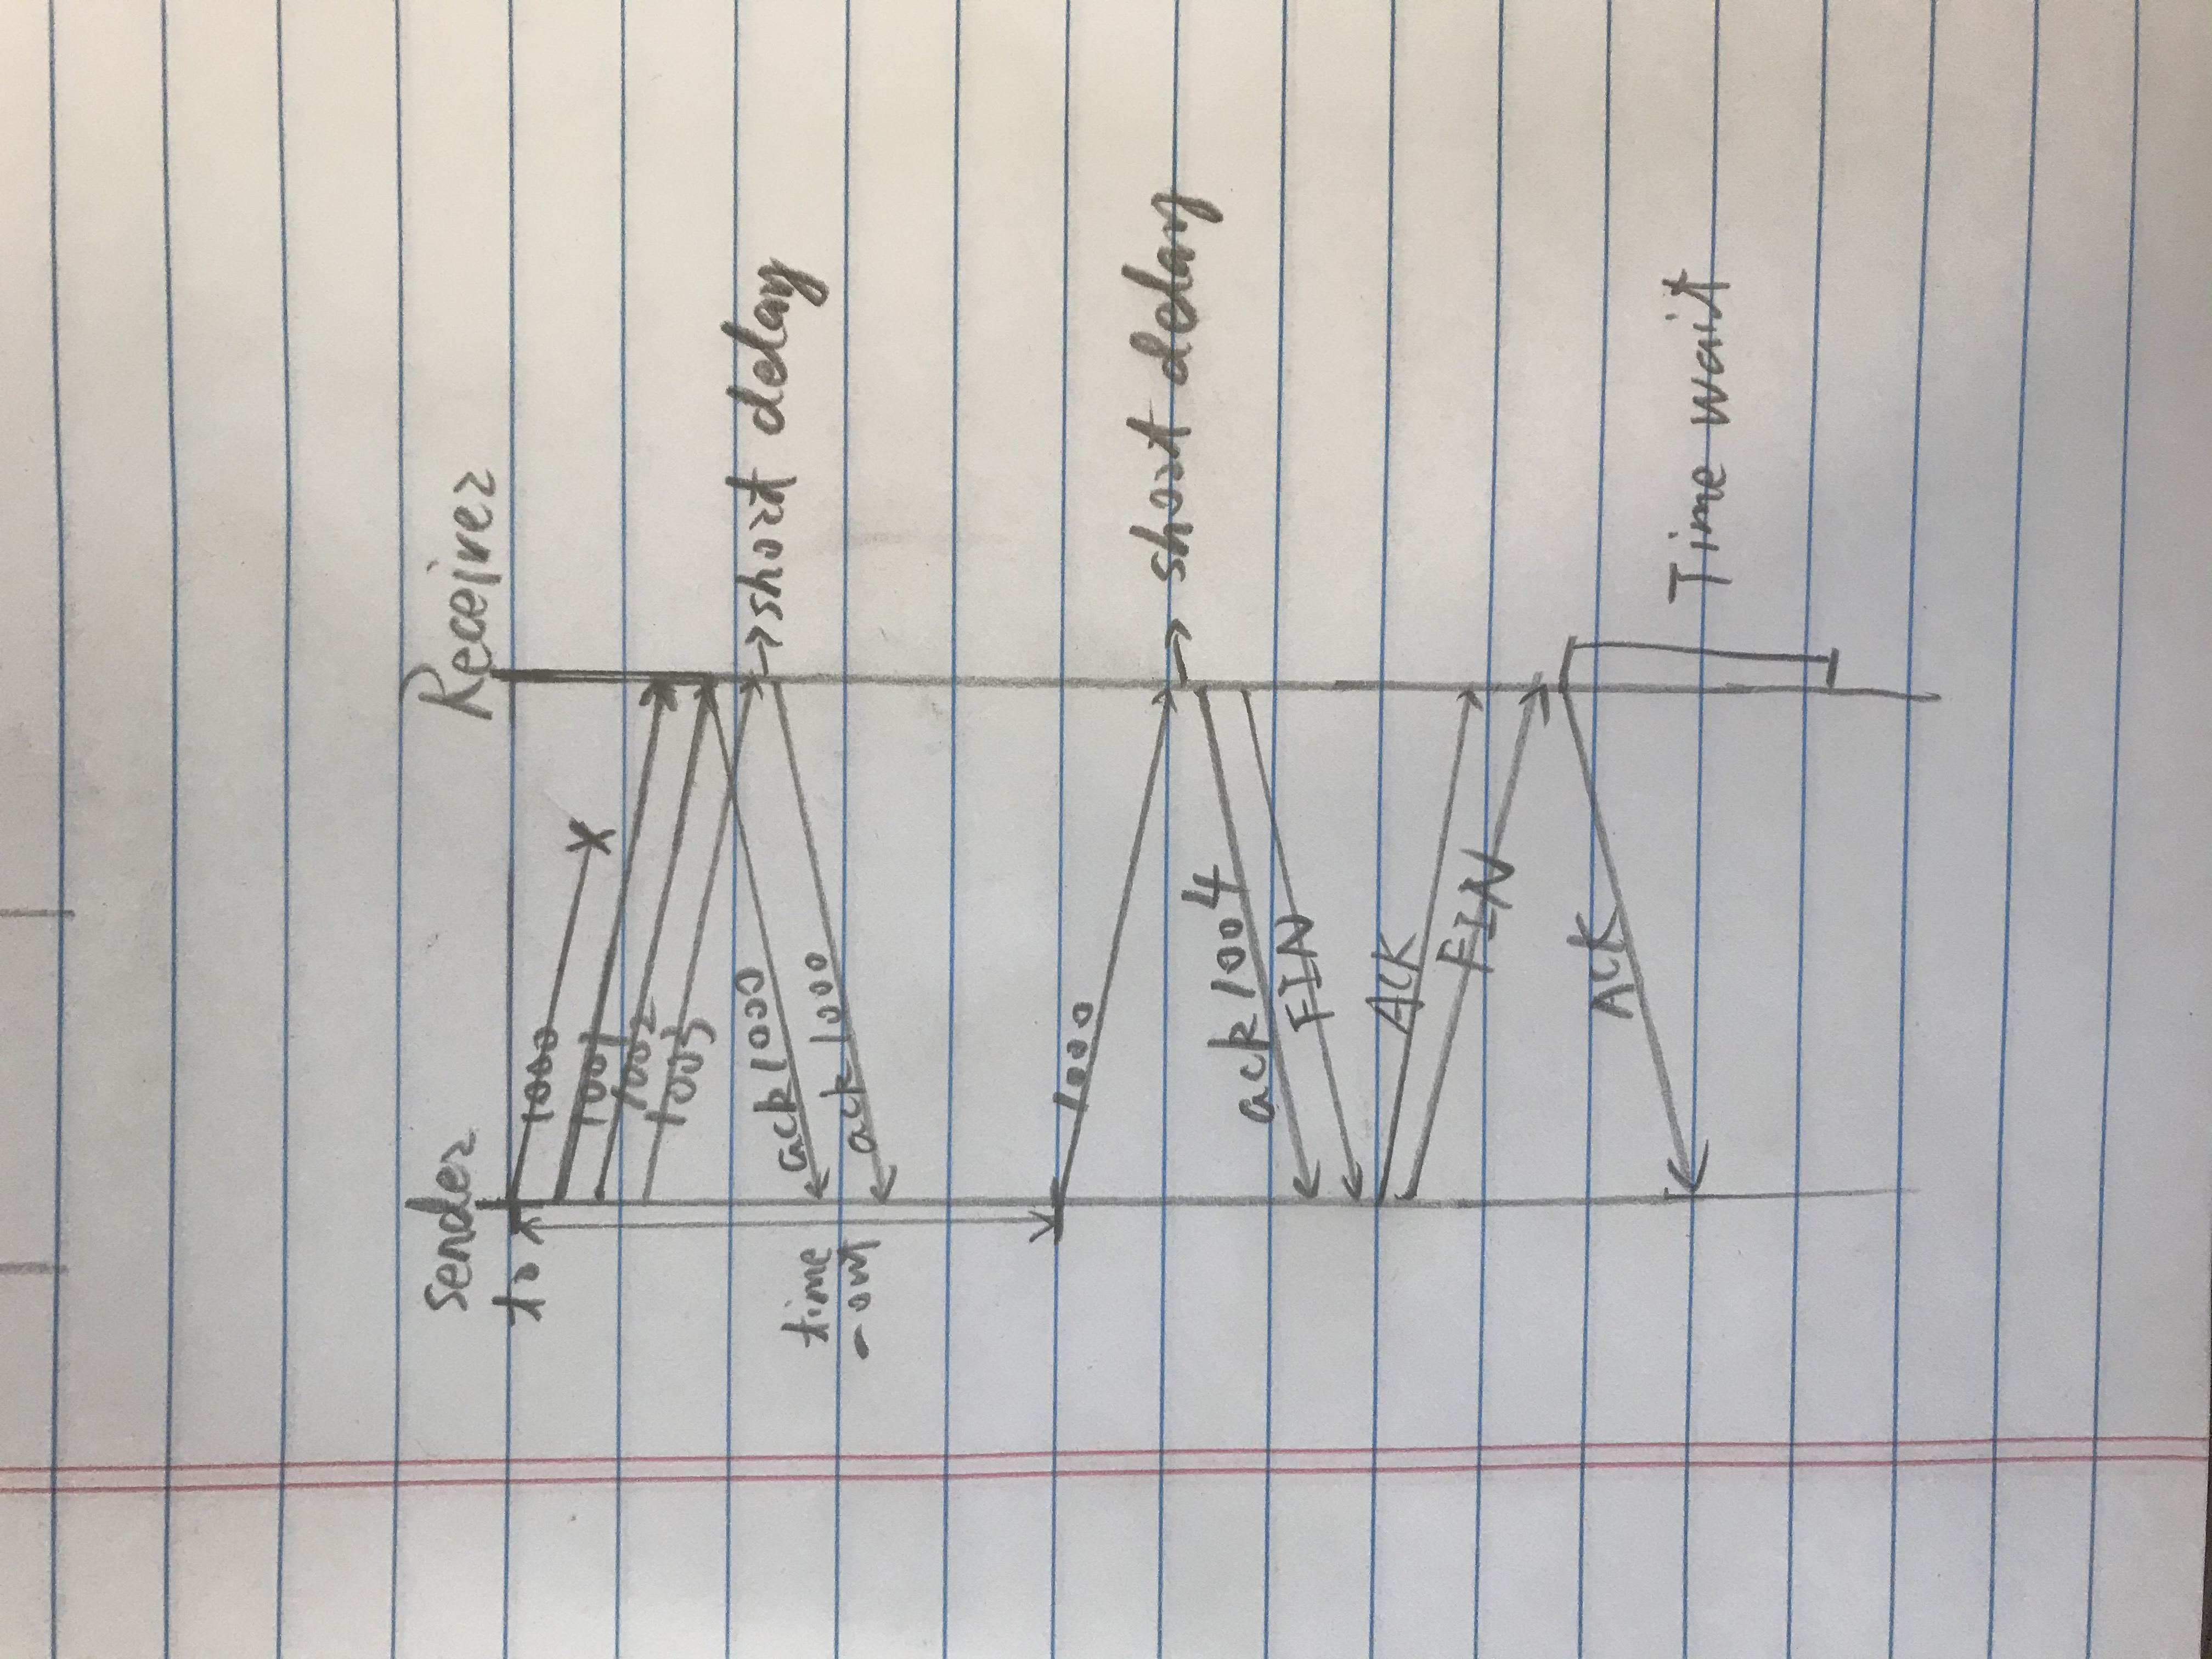 sender
Receiver
to
1000
X
1001
1002
1003
ack 1000
short delay
ack 1000
time
-out
1000
short delay
ack 1004
FIN
ACK
FIN
ACK
Time wait